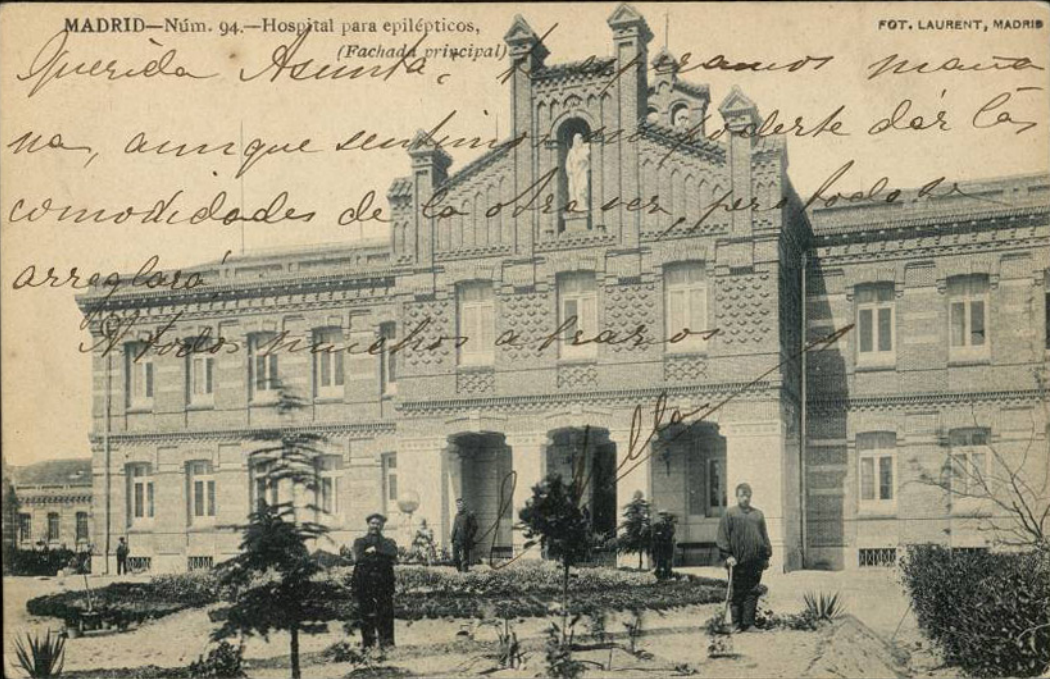 MADRID—Núm. 94.—Hospital para epilépticos,
(Fachada principal)
FOT. LAURENT, MADRID
Querida Asunta, te esperamos maña
na, aunque sentimos no poderte dar las
comodidades de la otra vez, pero todo se
arreglará.
A todos muchos abrazos